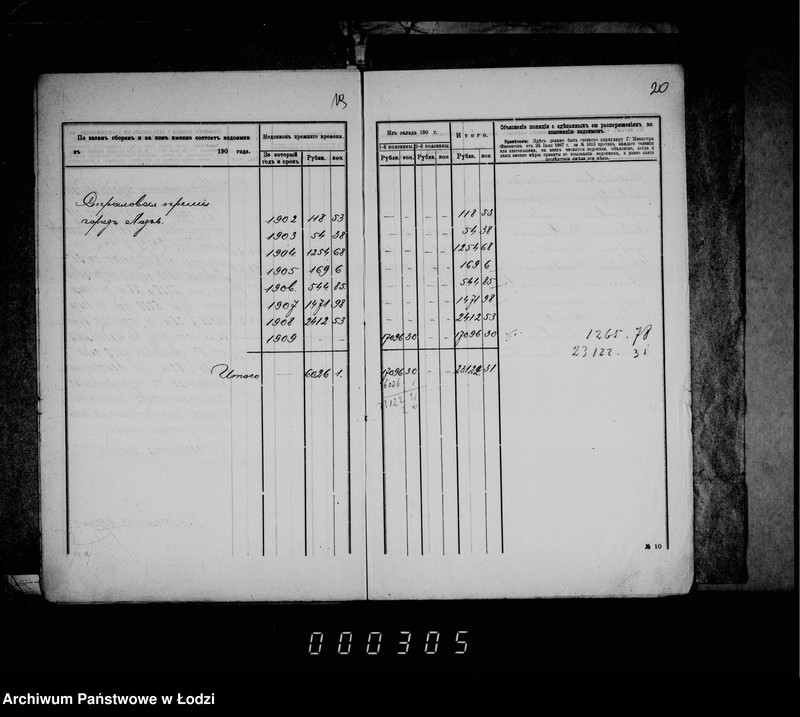 20
По какимъ сборамъ и на комъ именно состоитъ недоимки
къ 190 года.
Недоимокъ прежняго времени.
За который годъ и срокъ
Рубли. коп
Изъ оклада 190 г.
1-й половины. 2-й половины.
Рубли. коп. Рубли. коп.
Итого.
Рубли. коп
Объясненіе полиціи о сдѣланныхъ ею распоряженіяхъ ко
взысканію недоимокъ.
Страховая премія
городъ Лодзь.
1902 118 53 — — — — 118 53
1903 54 38 — — — — 54 38
1904 1254 68 — — — — 1254 68
1905 169 6 — — — — 169 6
1906 544 85 — — — — 544 85
1907 1471 98 — — — — 1471 98
1908 2412 53 — — — — 2412 53
1909 — — 17096 30 — — 17096 30
1265.78
23122.31
Итого 6026 1. 17096 30 — — 23122 31
6026 1
23122 31
№ 10
000305
Archiwum Państwowe w Łodzi